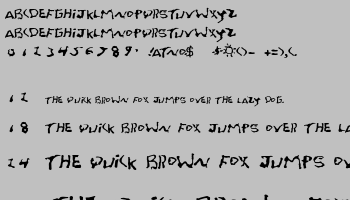 ABCDEFGHiJKLMNOPQRSTUVWXYZ
ABCDEFGHiJKLMNOPQRSTUVWXYZ
0 1 2 3 4 5 6 7 8 9
12 THE QUiCK BROWN FOX JUMPS OVER THE LAZY DOG.
18 THE QUiCK BROWN FOX JUMPS OVER THE LA
24 THE QUiCK BROWN FOX JUMPS OV